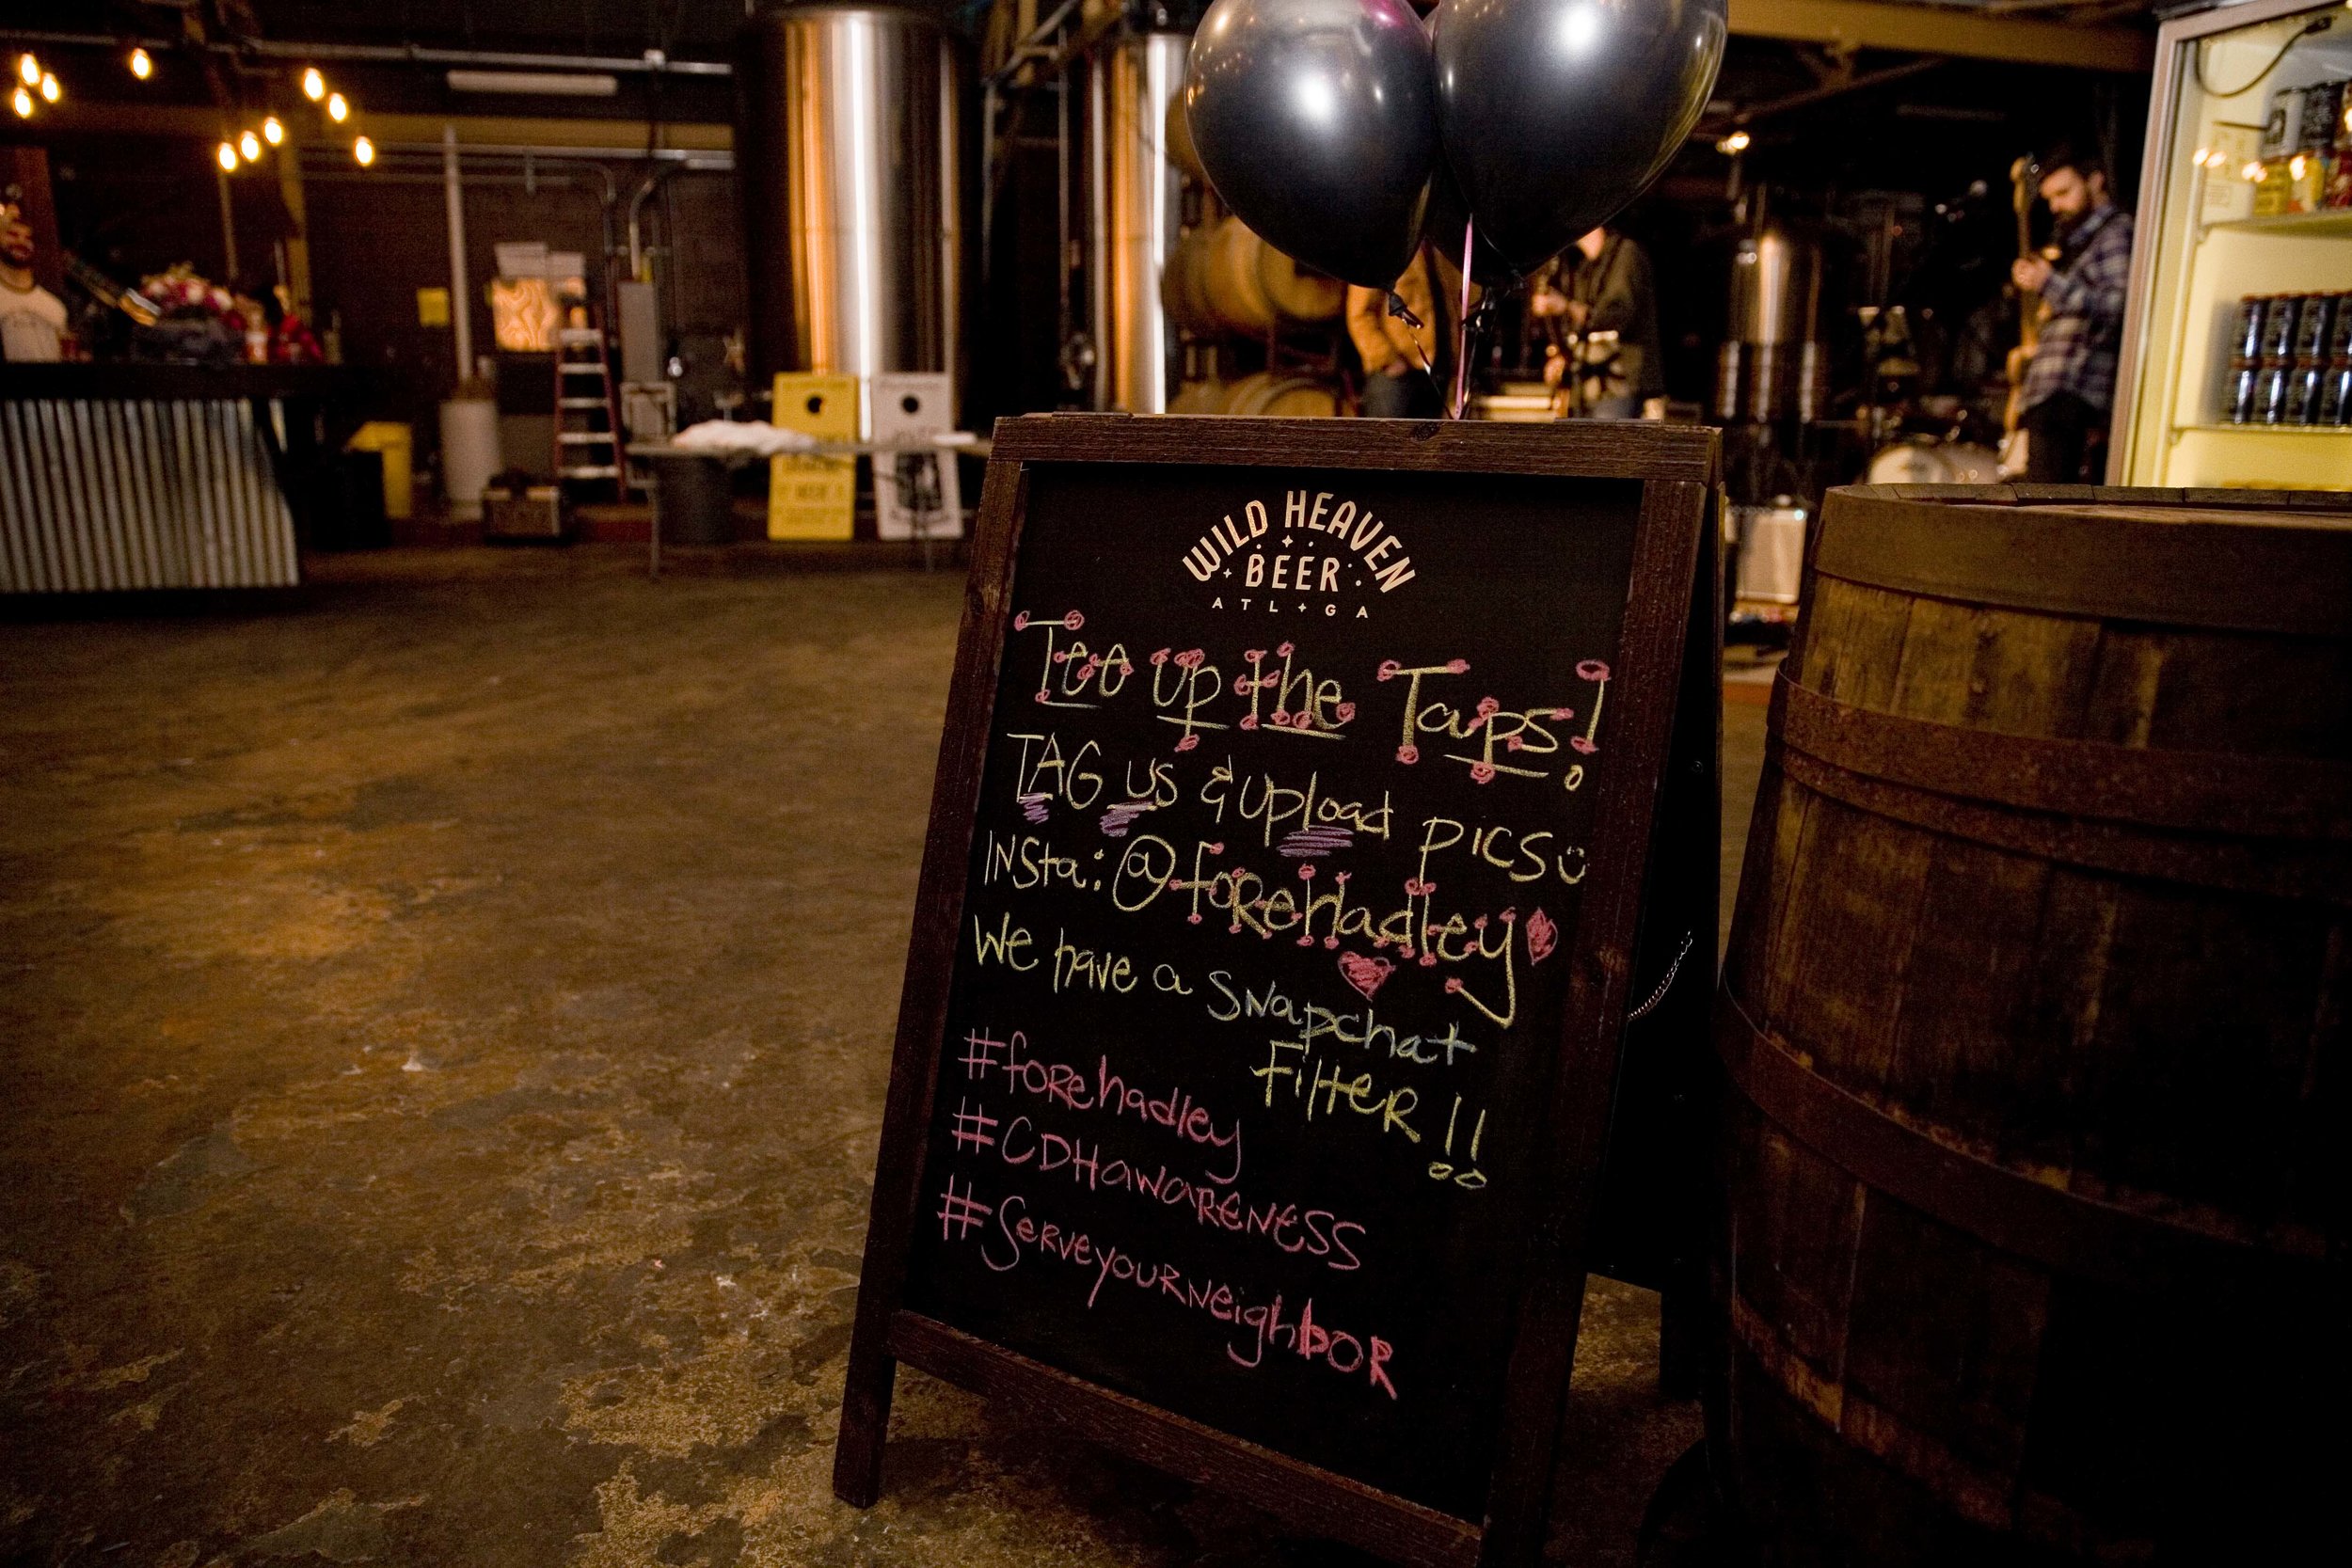 WILD HEAVEN
BEER
ATL+GA
Tee up the Taps!
TAG us & upload pics
INSta: @forehadley
We have a SNapchat
FilteR !!
#forehadley
#CDHawaRENESS
#ServeyouRNeighboR